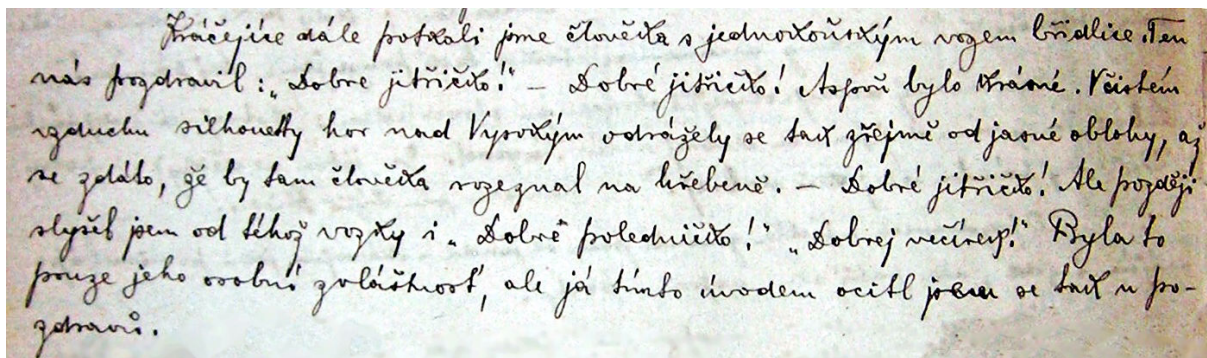 Kráčejíce dále potkali jsme člověka s jednokoňským vozem břidlice. Ten
nás pozdravil: „Dobré jitřičko!" — Dobré jitřičko! Aspoň bylo krásné. V čistém
vzduchu silhouetty hor nad Vysokým odrážely se tak zřejmě od jasné oblohy, až
se zdálo, že by tam člověka rozeznal na hřebeně. — Dobré jitřičko! Ale později
slyšel jsem od téhož vozky i „Dobré poledníčko!" „Dobrej večírek!" Byla to
pouze jeho osobní zvláštnost, ale já tímto úvodem ocitl jsem se tak u po-
zdravů.